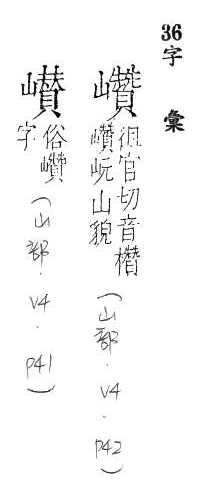 36
字彙
巑
徂官切音欑
巑岏山貌
(山部.V4.P42)
㠝
俗巑
字
(山部.V4.P41)